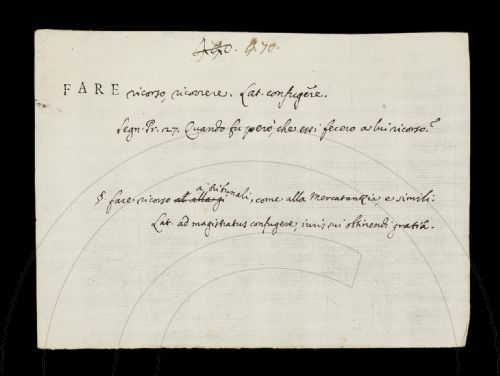 470.
FARE ricorso, ricorrere. Lat. confugere.
Segn. Pr. 27. Quando fu però, che essi fecero a lui ricorso.
a tribunali
§ fare ricorso, come alla Mercatanzia, e simili:
Lat. ad magistratus confugere, iuris sui obtinendi gratiâ.